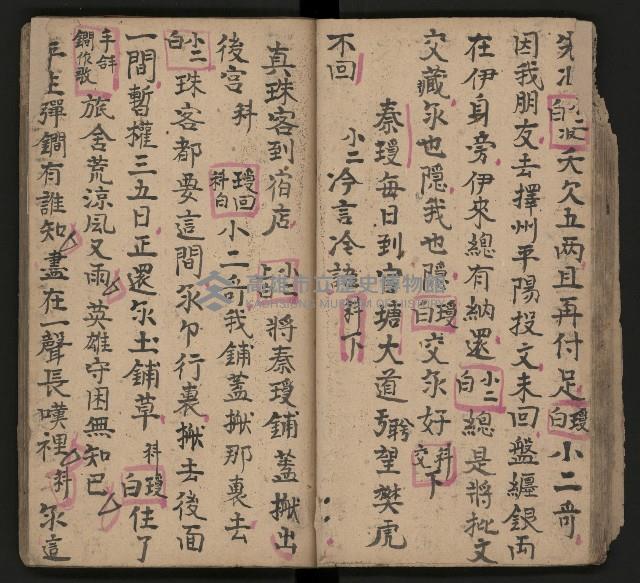 小二白 沒 夭欠五兩且再付足 瓊白 小二哥
因我朋友去擇州平陽投文未回盤纏銀両
在伊身旁伊來總有納還 小二白 總是將批文
交藏氶也隱我也隱 瓊白 交氶好 科交 下
秦瓊每日到官塘大道聆望樊虎
不回 小二冷言冷語 科下
真珠客到宿店 小上 將秦瓊鋪蓋搬出
後宮 科 瓊回科白 小二哥我鋪蓋搬那裏去
小二白 珠客都要這間氶卩行裏搬去後面
一間暫權三五日正還氶土鋪草 科 瓊白 住了
手 鐧作歌 旅舍荒涼风又雨 英雄守困無知己
平生彈鐧有誰知 盡在一聲長嘆裡 科 氶這
高雄市立歷史博物館
KAOHSIUNG MUSEUM OF HISTORY